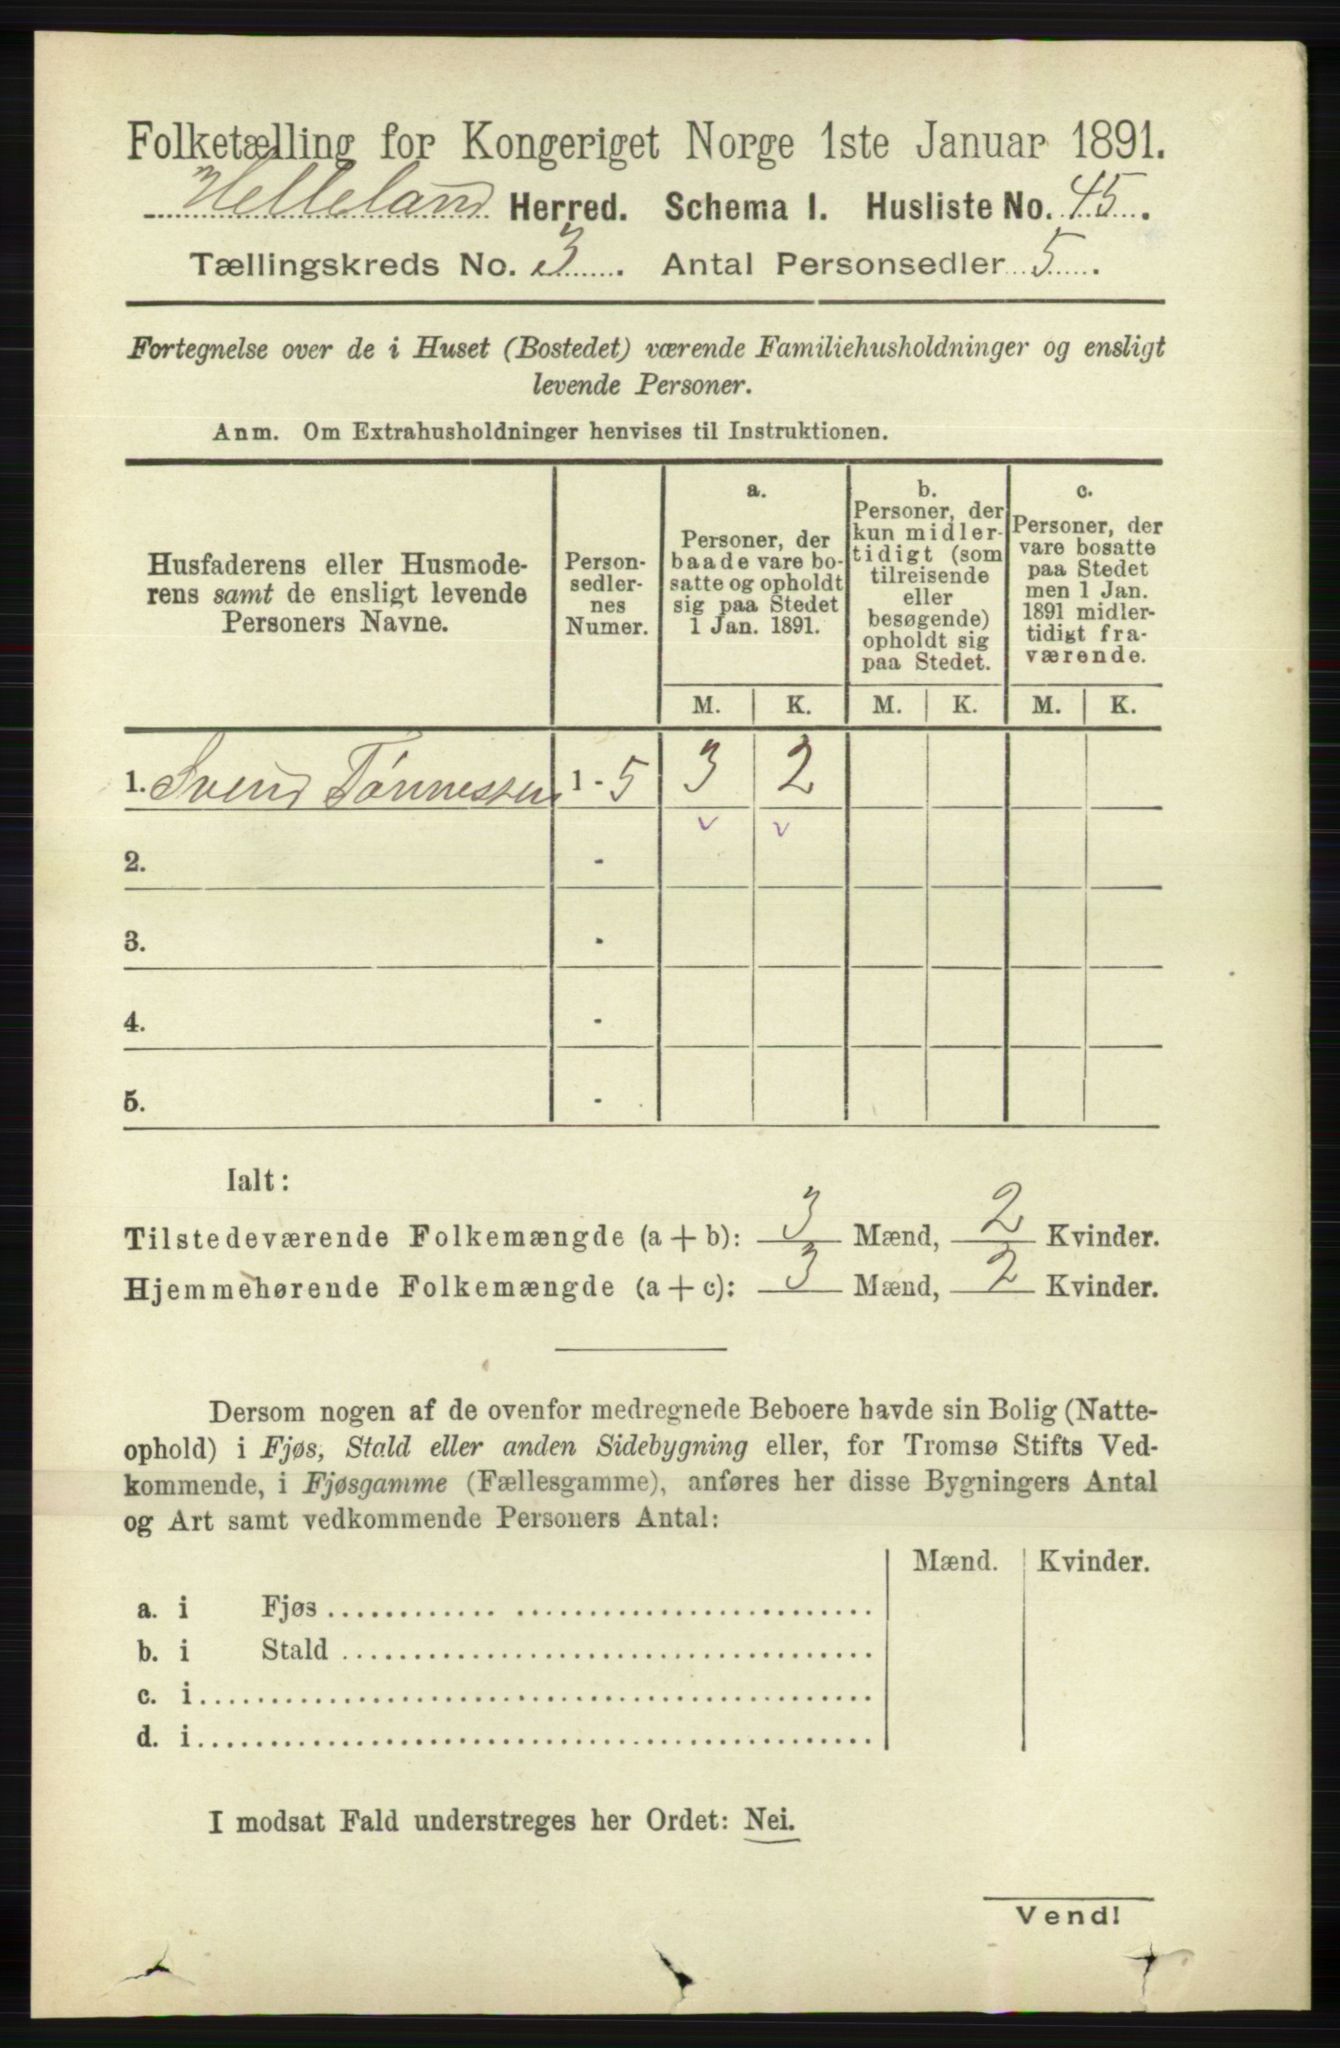 Folketælling for Kongeriget Norge 1ste Januar 1891.
Helleland Herred. Schema I. Husliste No. 45.
Tællingskreds No. 3. Antal Personsedler 5.
Fortegnelse over de i Huset (Bostedet) værende Familiehusholdninger og ensligt
levende Personer.
Anm. Om Extrahusholdninger henvises til Instruktionen.
Husfaderens eller Husmode-
rens samt de ensligt levende
Personers Navne.
Person-
sedler-
nes
Numer.
a.
Personer, der
baade vare bo-
satte og opholdt
sig paa Stedet
1 Jan. 1891.
b.
Personer, der
kun midler-
tidigt (som
tilreisende
eller
besøgende)
opholdt sig
paa Stedet.
c.
Personer, der
vare bosatte
paa Stedet
men 1 Jan.
1891 midler-
tidigt fra-
værende.
M. K. M. K. M. K.
1. Svend Tønnessen 1 - 5 3 2
v v
2. -
3. -
4. -
5. -
Ialt:
Tilstedeværende Folkemængde (a + b): 3 Mænd, 2 Kvinder.
Hjemmehørende Folkemængde (a + c): 3 Mænd, 2 Kvinder.
Dersom nogen af de ovenfor medregnede Beboere havde sin Bolig (Natte-
ophold) i Fjøs, Stald eller anden Sidebygning eller, for Tromsø Stifts Ved-
kommende, i Fjøsgamme (Fællesgamme), anføres her disse Bygningers Antal
og Art samt vedkommende Personers Antal:
Mænd. Kvinder.
a. i Fjøs
b. i Stald
c. i
d. i
I modsat Fald understreges her Ordet: Nei.
Vend!